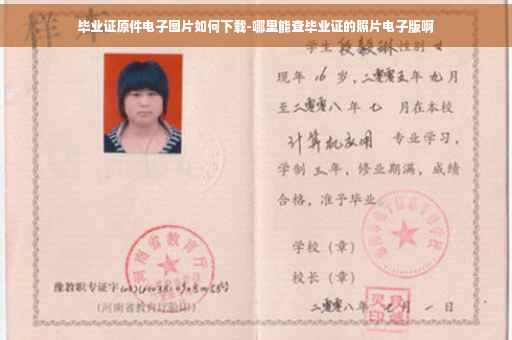 毕业证原件电子图片如何下载-哪里能查毕业证的照片电子版啊
样本
学生 段毅琳 性别 女
现年 16 岁，二零零五年 九月
至二零零八年 七 月在本校
计算机应用 专业学习，
学制 三 年，修业期满，成绩
合格，准予毕业
学校（章）
校长（章）
河南省教育厅
豫教职专证字
(河南省教育厅验印)
二零零八年 七 月 一 日